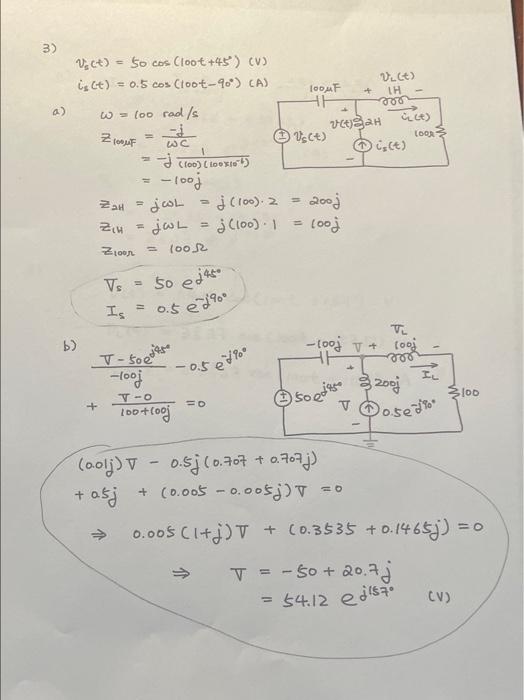 3)
v_s(t) = 50 cos (100t+45°) (V)
i_s(t) = 0.5 cos (100t-90°) (A)
a) ω = 100 rad/s
Z_100μF = -j/ωC
= -j 1/((100)(100×10^-6))
= -100j
Z_2H = jωL = j(100)·2 = 200j
Z_1H = jωL = j(100)·1 = 100j
Z_100Ω = 100Ω
V_s = 50 e^j45°
I_s = 0.5 e^-j90°
100μF + v_L(t) -
1H
+ v(t) 2H i_L(t)
100Ω
± v_s(t)
- i_s(t)
b) (V-50e^j45°)/(-100j) - 0.5 e^-j90°
+ (V-0)/(100+100j) = 0
-100j V + V_L -
100j
+ 200j I_L
100
± 50e^j45° V
- 0.5e^-j90°
(0.01j)V - 0.5j(0.707 + 0.707j)
+ 0.5j + (0.005 - 0.005j)V = 0
⇒ 0.005(1+j)V + (0.3535 + 0.1465j) = 0
⇒ V = -50 + 20.7j
= 54.12 e^j157° (V)